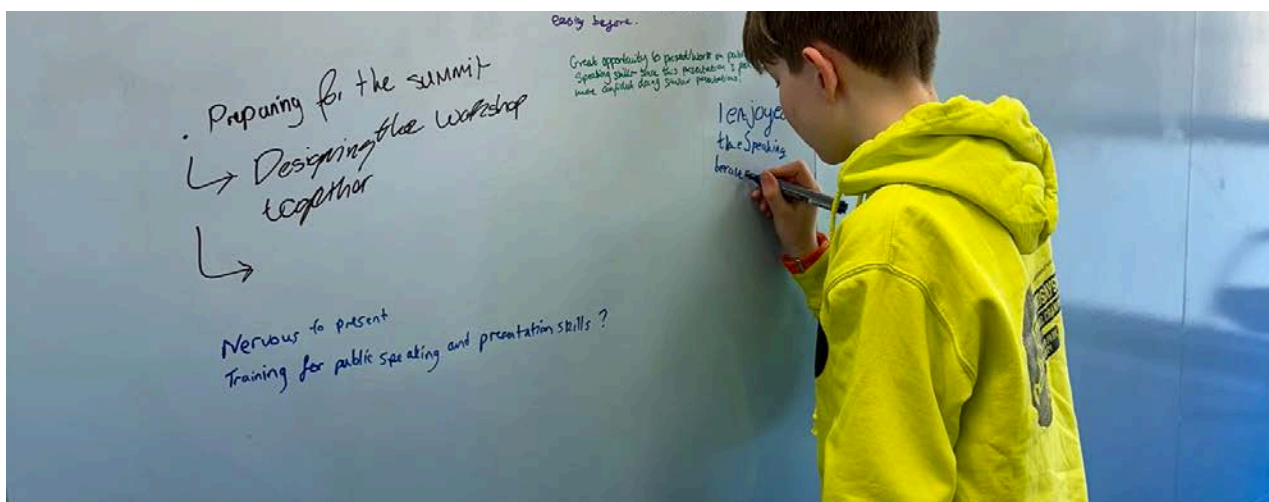 easily before.
Great opportunity to present/work on public
Speaking skills since this presentation I
more confident doing similar presentations!
. Preparing for the summit
Designing the workshop
together
I enjoye
the Speaking
Nervous to present
Training for public speaking and presentation skills ?